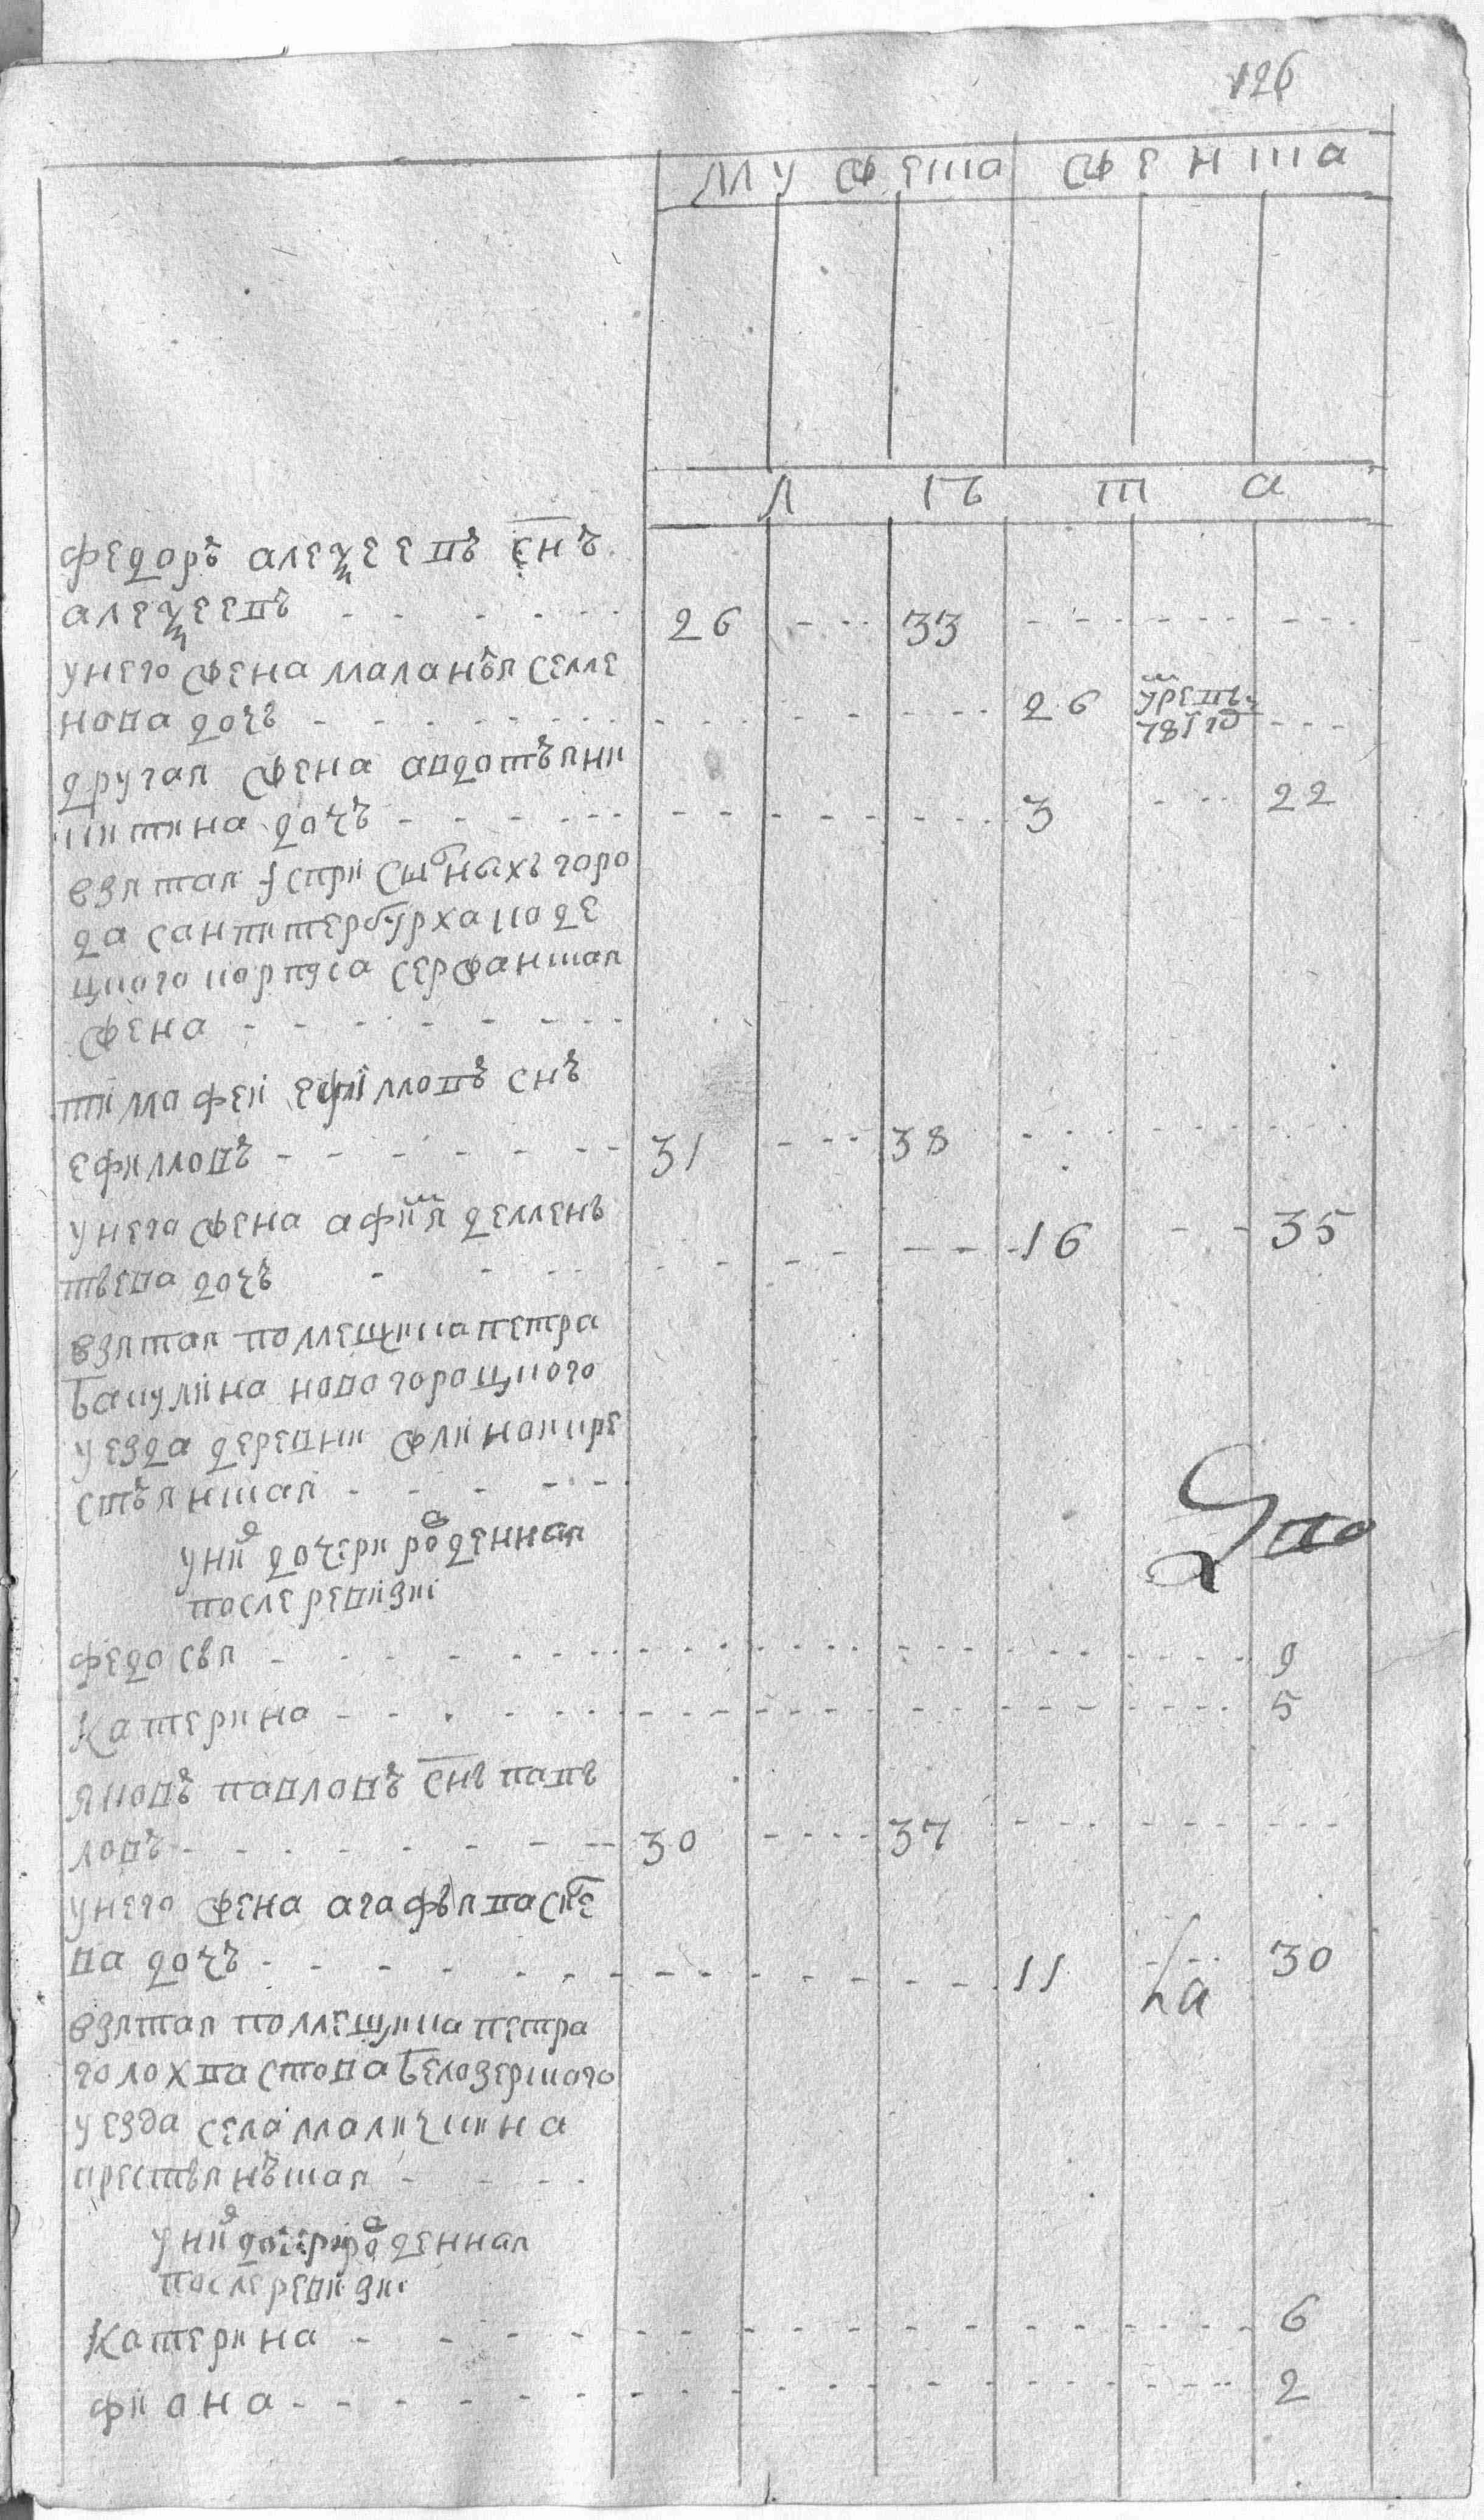 126
мужеска женска
лѣта
федоръ алексеевъ снъ
алексеевъ 26 33
унего жена маланья семе
нова дочь 26
другая жена авдотья ни
китина дочь 3 22
взятая
да санктпетербурха каде
цкого корпуса сержанская
жена
тимофеи ефимовъ снъ
ефимовъ 31 38
унего жена афимя демень
тьева дочь 16 35
взятая помещика петра
бакулина новогороцкого
уезда деревни крe
стьянская
унии дочери рожденная
после ревизиі
федосья 9
катерина 5
яковъ павловъ снъ пав
ловъ 30 37
унего жена агафья
ва дочь 11 30
взятая помещика петра
голохвастова белозерского
уезда села
крестьянская
унии дочери рожденная
после ревизиі
катерина 6
фиона 2